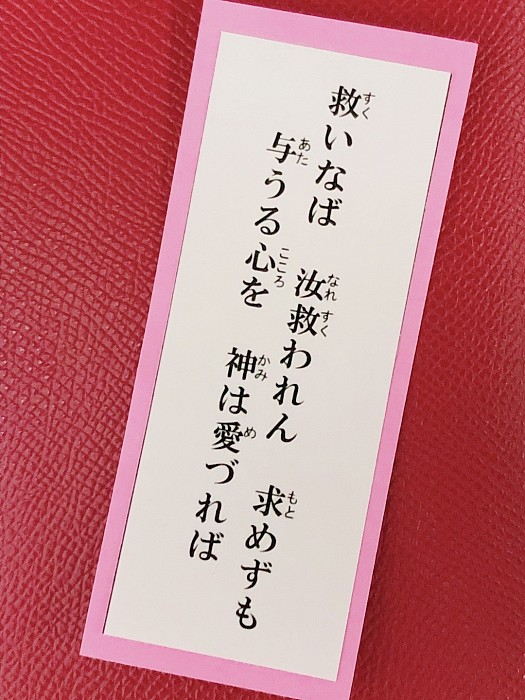 救いなば　汝救われん　求めずも
与うる心を　神は愛づれば